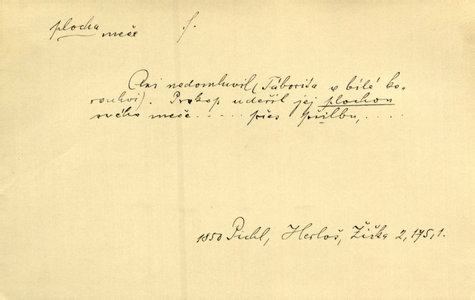 plocha
meče f.
Ani nedomluvil (Táborita v bílé ko-
rouhvi). Prokop udeřil jej plochou
svého meče ..... přes přilbu, ....
1850 Pichl, Herloš, Žižka 2, 175, 1.